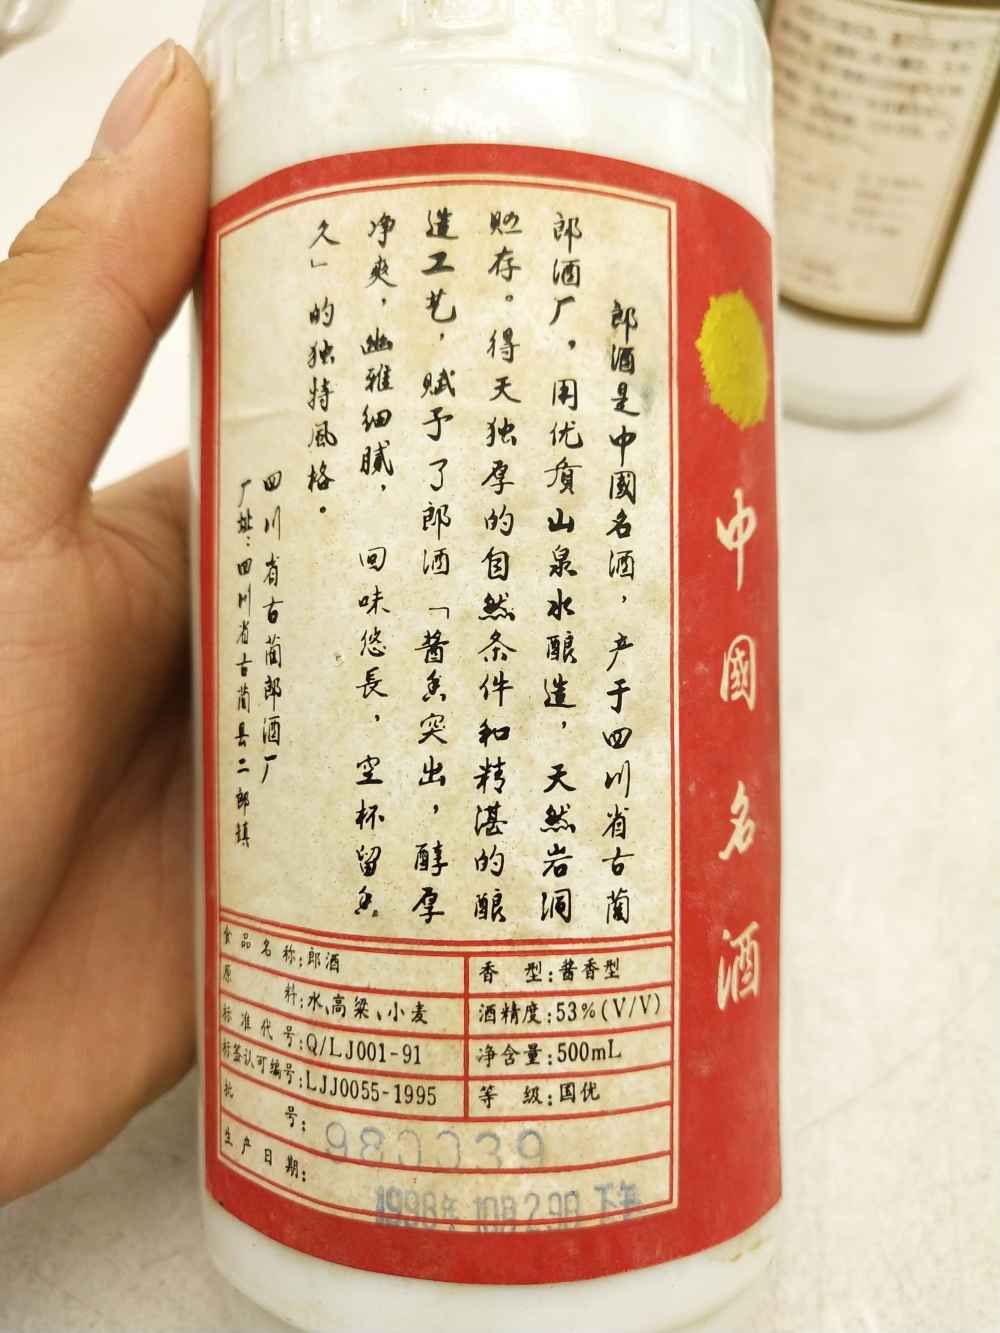 中國名酒
郎酒是中國名酒，产于四川省古蔺
郎酒厂，用优质山泉水酿造，天然岩洞
贮存。得天独厚的自然条件和精湛的酿
造工艺，赋予了郎酒「酱香突出，醇厚
净爽，幽雅细腻，回味悠長，空杯留香
久」的独特風格。
四川省古蔺郎酒厂
厂址：四川省古蔺县二郎镇
食品名称：郎酒
香型：酱香型
原料：水、高粱、小麦
酒精度：53%(V/V)
标准代号：Q/LJ001-91
净含量：500mL
标签认可编号：LJJ0055-1995
等级：国优
批号：980039
生产日期：1998年10月29日 下午